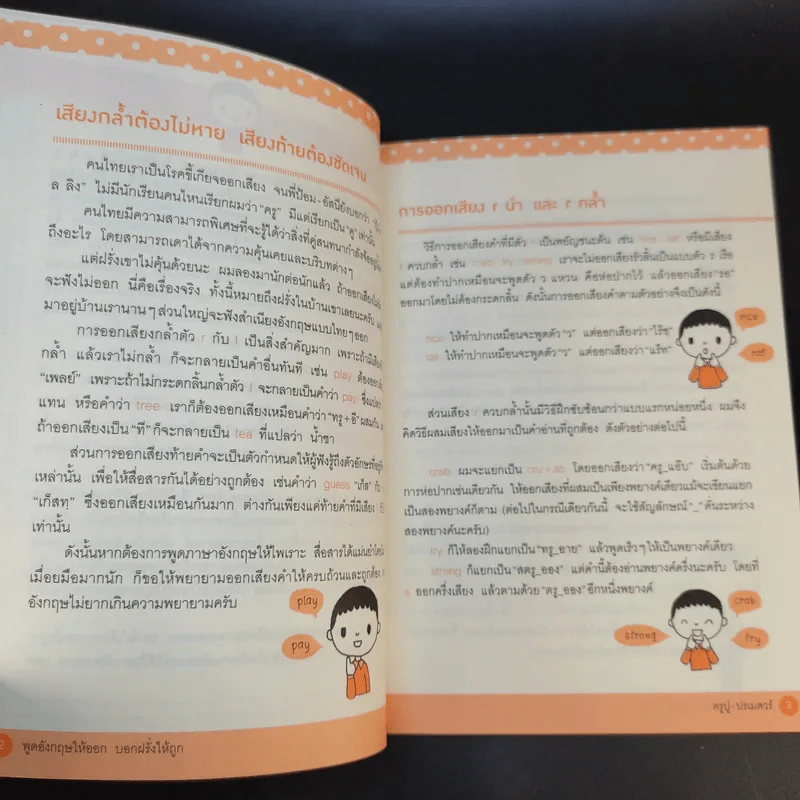 เสียงกล้ำต้องไม่หาย เสียงท้ายต้องชัดเจน
คนไทยเราเป็นโรคขี้เกียจออกเสียง จนพี่ป้อม-อัสนียังบอกว่า
ล ลิง" ไม่มีนักเรียนคนไหนเรียกผมว่า "ครู" มีแต่เรียกเป็น "คู" เท่านั้น
คนไทยมีความสามารถพิเศษที่จะรู้ได้ว่าสิ่งที่คู่สนทนากำลังพูด
ถึงอะไร โดยสามารถเดาได้จากความคุ้นเคยและบริบทต่างๆ
แต่ฝรั่งเขาไม่คุ้นด้วยนะ ผมลองมานักต่อนักแล้ว ถ้าออกเสียง
จะฟังไม่ออก นี่คือเรื่องจริง ทั้งนี้หมายถึงฝรั่งในบ้านเขาเลยนะครับ
มาอยู่บ้านเรานานๆ ส่วนใหญ่จะฟังสำเนียงอังกฤษแบบไทยๆ ออก
การออกเสียงกล้ำตัว r กับ l เป็นสิ่งสำคัญมาก เพราะถ้ามี
กล้ำ แล้วเราไม่กล้ำ ก็จะกลายเป็นคำอื่นทันที เช่น play ต้องออก
"เพลย์" เพราะถ้าไม่กระดกลิ้นกล้ำตัว l จะกลายเป็นคำว่า pay ซึ่งแปล
แทน หรือคำว่า tree เราก็ต้องออกเสียงเหมือนคำว่า "ทรู + อี" ผสมกัน
ถ้าออกเสียงเป็น "ที" ก็จะกลายเป็น tea ที่แปลว่า น้ำชา
ส่วนการออกเสียงท้ายคำจะเป็นตัวกำหนดให้ผู้ฟังรู้ถึงตัวอักษรที่อยู่
เหล่านั้น เพื่อให้สื่อสารกันได้อย่างถูกต้อง เช่นคำว่า guess "เก็ส" กับ
"เก็สทฺ" ซึ่งออกเสียงเหมือนกันมาก ต่างกันเพียงแค่ท้ายคำที่มีเสียง
เท่านั้น
ดังนั้นหากต้องการพูดภาษาอังกฤษให้ไพเราะ สื่อสารได้แม่นยำโดยไม่
เมื่อยมือมากนัก ก็ขอให้พยายามออกเสียงคำให้ครบถ้วนและถูกต้อง
อังกฤษไม่ยากเกินความพยายามครับ
play
pay
2 พูดอังกฤษให้ออก บอกฝรั่งให้ถูก
การออกเสียง r นำ และ r กล้ำ
วิธีการออกเสียงคำที่มีตัว r เป็นพยัญชนะต้น เช่น rice rat หรือมีเสียง
r ควบกล้ำ เช่น crab try strong เราจะไม่ออกเสียงรัวลิ้นเป็นแบบตัว ร เรือ
แต่ต้องทำปากเหมือนจะพูดตัว ว แหวน คือห่อปากไว้ แล้วออกเสียง "รอ"
ออกมาโดยไม่ต้องกระดกลิ้น ดังนั้นการออกเสียงคำตามตัวอย่างจึงเป็นดังนี้
rice ให้ทำปากเหมือนจะพูดตัว "ว" แต่ออกเสียงว่า "ไร๊ซฺ"
rat ให้ทำปากเหมือนจะพูดตัว "ว" แต่ออกเสียงว่า "แร็ท"
rice
rat
ส่วนเสียง r ควบกล้ำนั้นมีวิธีฝึกซับซ้อนกว่าแบบแรกหน่อยหนึ่ง ผมจึง
คิดวิธีผสมเสียงให้ออกมาเป็นคำอ่านที่ถูกต้อง ดังตัวอย่างต่อไปนี้
crab ผมจะแยกเป็น cru + ab โดยออกเสียงว่า "ครู_แอ๊บ" เริ่มต้นด้วย
การห่อปากเช่นเดียวกัน ให้ออกเสียงที่ผสมเป็นเพียงพยางค์เดียวแม้จะเขียนแยก
เป็นสองพยางค์ก็ตาม (ต่อไปในกรณีเดียวกันนี้ จะใช้สัญลักษณ์ "_" คั่นระหว่าง
สองพยางค์นะครับ)
try ก็ให้ลองฝึกแยกเป็น "ทรู_อาย" แล้วพูดเร็วๆ ให้เป็นพยางค์เดียว
strong ก็แยกเป็น "สตรู_ออง" แต่คำนี้ต้องอ่านพยางค์ครึ่งนะครับ โดยที่
s ออกครึ่งเสียง แล้วตามด้วย "ตรู_ออง" อีกหนึ่งพยางค์
crab
strong
try
ครูปู-ปรเมศวร์ 3